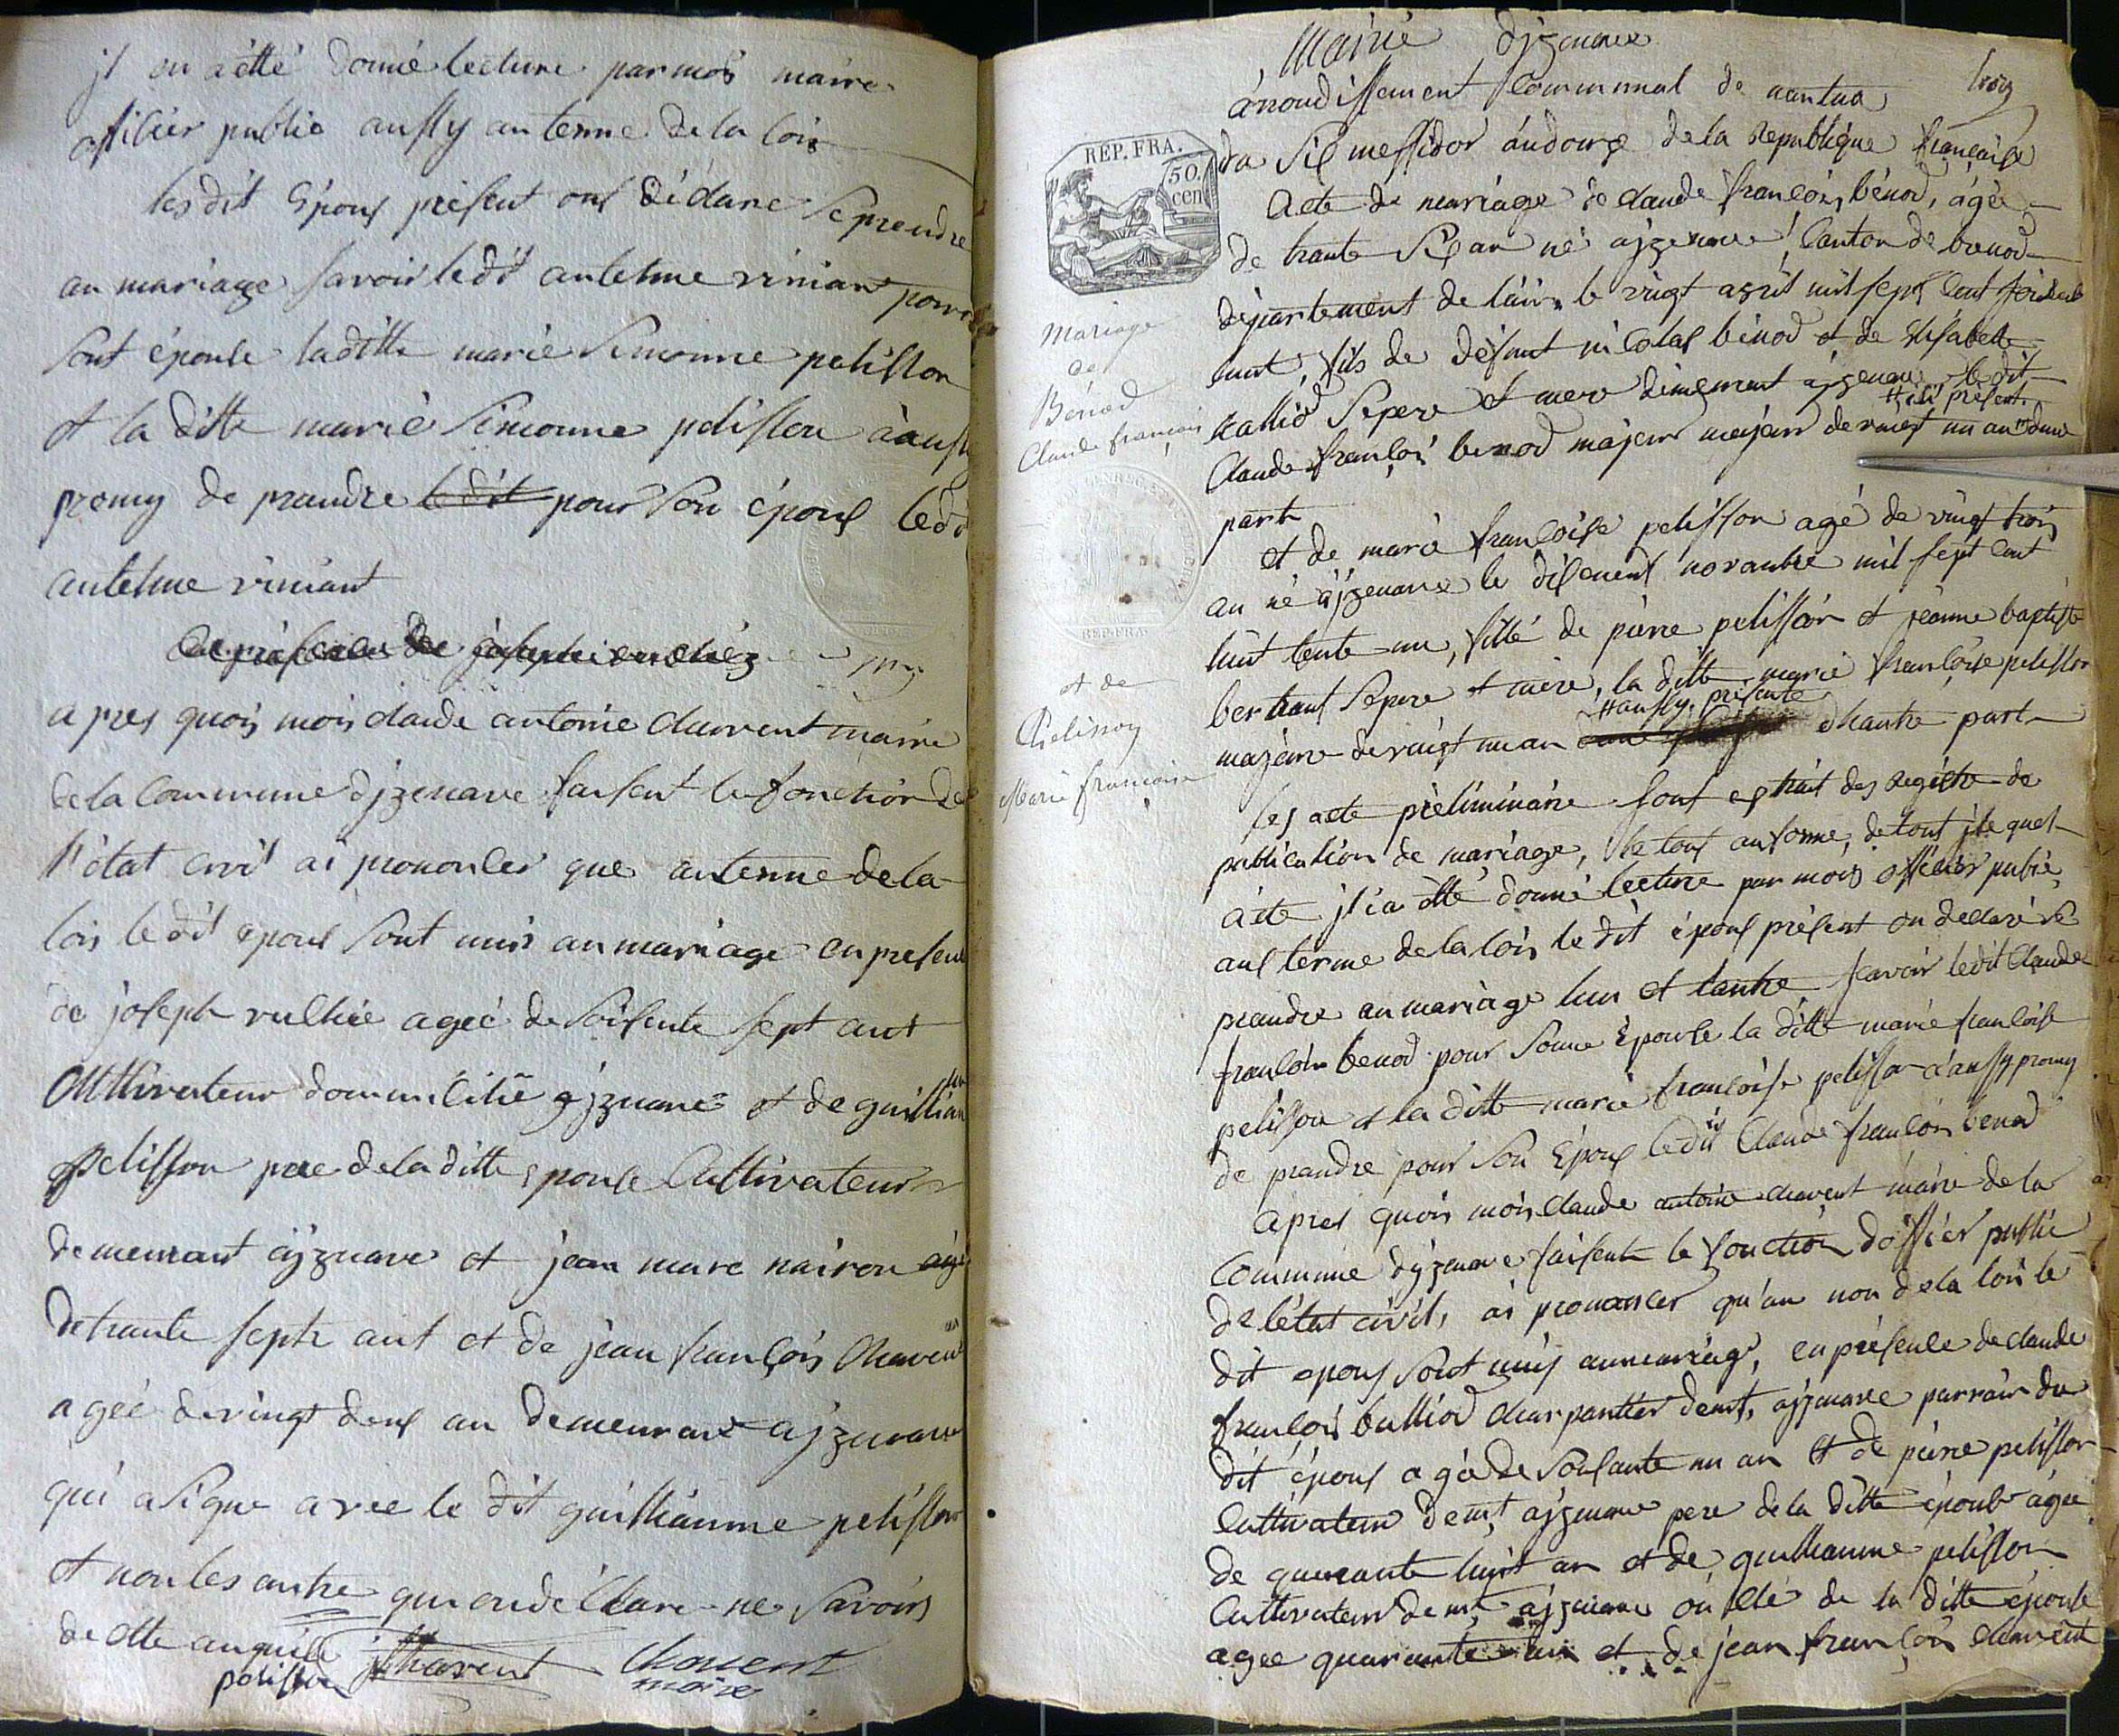 jl en à étté donné lecture par mois maire
officier public aussy au terme de la lois
lesdit Epoux présent ont déclaré se prendre
au mariage savoir ledit antelme viviant pour
sont épouse laditte marie simonne pelisson
et la ditte marie simonne pelisson à aussy
promy de prandre le dit pour son époux ledit
antelme viviant
apres quois mois claude antoine chavent maire
de la commune djzenave faisent le fonction de
l'état civil ai prononcer que au terme de la
lois ledit epoux sont unis au mariage en presence
de joseph vulliée agée de soisente sept ant
cultivateur dommicilié ajzenave et de guilliaume
pelisson pere de la ditte epouse cultivateur
demeurant ajzenave et jean marc nairon agé
de trante septe ant et de jean françois chavent
agée de vingt deux an demeurant ajzenave
qui a signe avec le dit guilliaume pelisson
et non les autre qui on déclaré ne savoir
de cette enquis
pelisson jfchavent chavent
maire
Mairie djzenave
trois
arrondissement communal de nantua
REP. FRA.
50 cen
du six messidor an douze de la republique françaisse
Acte de mariage de claude françois bénod, agée
de trante six an né ajzenave, canton de brenod
département de l'ain, le vingt avril mil sept cent soixante
huit, fils de défunt nicolas bénod et de Elisabette
calliod se pere et mere demeurant ajzenave, le dit
ici présent
claude françois benod majeur majeur de vingt un an dune
part
et de marie françoise pelisson agé de vingt trois
an né ajzenave le diseneuf novanbre mil sept cent
huit tente un, fille de pierre pelisson et jeanne baptiste
bertrant se pere et mère, la ditte marie françoise pelisson
aussy présente
majeure de vingt un an dhautre part
les acte préliminaire sont extrait des registre de
publication de mariage, le tout au forme, de tout jle quel
acte jl i a étté donné lecture par mois officier public
aux terme de la lois le dit époux présent on declaré se
prandre au mariage lun et lautre savoir ledit claude
françois benod pour sonne Epouse la ditte marie françoise
pelisson et la ditte marie françoise pelisson a aussy promy
de prandre pour son Epoux ledit claude françois benod
apres quois mois claude antoine chavent maire de la
commune djzenave faisent le fonction d'officier public
de l'état civil, ai prononcer qu'au non de la lois le
dit epoux sont unis au mariage, en présence de claude
françois balliod charpantier demt, ajzenave parrain du
dit époux agée de soixante un an et de pierre pelisson
cultivateur demt ajzenave pere de la ditte épouse agée
de quarante huit an et de guilliaume pelisson
cultivateur demt ajzenave oncle de la ditte épouse
agée quarante an et de jean françois chavent
Mariage
de
Bénod
Claude françois
et de
Pelisson
Marie françoise
REP. FRA.